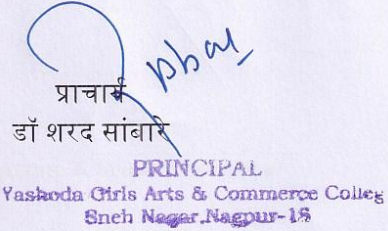 प्राचार्य
डॉ शरद सांबारे
PRINCIPAL
Yashoda Girls Arts & Commerce Colleg
Sneh Nagar,Nagpur-15